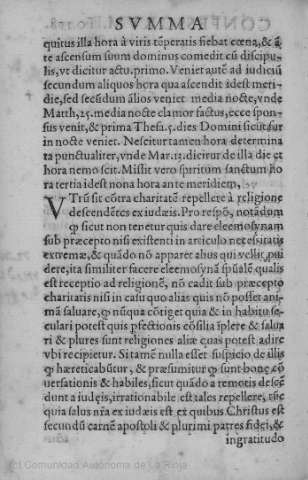 SVMMA
quitus illa hora à viris tẽperatis fiebat cœna, & ã
te ascensum suum dominus comedit cũ discipu-
lis, vt dicitur actu. primo. Veniet autẽ ad iudiciũ
secundum aliquos hora qua ascendit idest meri-
die, sed secũdum alios veniet media nocte, vnde
Matth, 25. media nocte clamor factus, ecce spon-
sus venit, & prima Thesa. 5. dies Domini sicut fur
in nocte veniet. Nescitur tamen hora determina
ta punctualiter, vnde Mar. 13. dicitur de illa die et
hora nemo scit. Missit vero spiritum sanctum ho
ra tertia idest nona hora ante meridiem,
VTrũ sit cõtra charitatẽ repellere à religione
descendẽtes ex iudæis. Pro respõ, notandũ
φ sicut non tenetur quis dare eleemosynam
sub præcepto nisi existenti in articulo necessitatis
extremæ, & quãdo nõ apparet alius qui vellit, subuẽ
dere, ita similiter facere eleemosynã spũalẽ qualis
est receptio ad religionẽ, nõ cadit sub præcepto
charitatis nisi in casu quo alias quis nõ posset ani-
mã saluare, φ nũqua cõtiget quia & in habitu se-
culari potest quis pfectionis cõsilia ĩplere & salua
ri & plures sunt religiones aliæ quas potest adire
vbi recipietur. Si tamẽ nulla esset suspicio de illis
φ hæreticabũtur, & præsumitur φ sunt bonę cõ
uersationis & habiles, sicut quãdo a remotis descẽ
dunt a iudęis, irrationabile est tales repellere, tũc
quia salus nr̃a ex iudæis est ex quibus Christus est
secundũ carnẽ apostoli & plurimi patres fidei, &
ingratitudo
(c) Comunidad Autónoma de La Rioja